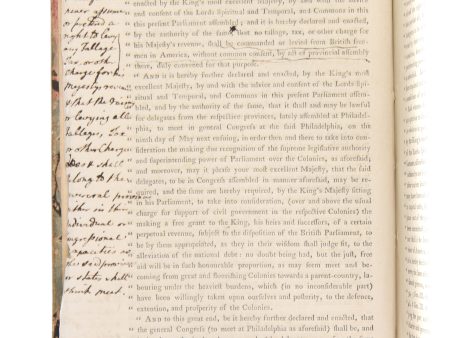 never assume
or pretend a
right to levy
any Tallage
Tax or other
charge for his
Majesty's revenue
& that the
levying all
Tallages, Tax
or other Charge
shall
belong to the
several provinces
either in their
individual or
Congressional
Capacities as
the said provinces
or states shall
think meet.
enacted, by the King's most Excellent Majesty, by and with the advice
and consent of the Lords Spiritual and Temporal, and Commons in
" this present Parliament assembled; and it is hereby declared and enacted,
" by the authority of the same, that no tallage, tax, or other charge for
" his Majesty's revenue, shall be commanded or levied from British free-
" men in America, without common consent, by act of provincial assembly
" there, duly convened for that purpose.
" AND it is hereby further declared and enacted, by the King's most
" excellent Majesty, by and with the advice and consent of the Lords Spi-
" ritual and Temporal, and Commons in this present Parliament assem-
" bled, and by the authority of the same, that it shall and may be lawful
" for delegates from the respective provinces, lately assembled at Philadel-
" phia, to meet in general Congress at the said Philadelphia, on the
" ninth day of May next ensuing, in order then and there to take into con-
" sideration the making due recognition of the supreme legislative authority
" and superintending power of Parliament over the Colonies, as aforesaid;
" and moreover, may it please your most excellent Majesty, that the said
" delegates, to be in Congress assembled in manner aforesaid, may be re-
" quired, and the same are hereby required, by the King's Majesty sitting
" in his Parliament, to take into consideration, (over and above the usual
" charge for support of civil government in the respective Colonies) the
" making a free grant to the King, his heirs, and successors, of a certain
" perpetual revenue, subject to the disposition of the British Parliament,
" to be by them appropriated, as they in their wisdom shall judge fit, to the
" alleviation of the national debt: no doubt being had, but the just, free
" aid will be in such honourable proportion, as may seem meet and be-
" coming from great and flourishing Colonies towards a parent-country, la-
" bouring under the heaviest burdens, which (in no inconsiderable part)
" have been willingly taken upon ourselves and posterity, to the defence,
" extension, and prosperity of the Colonies.
" AND to this great end, be it hereby further declared and enacted, that
" the general Congress (to meet at Philadelphia as aforesaid) shall be, and